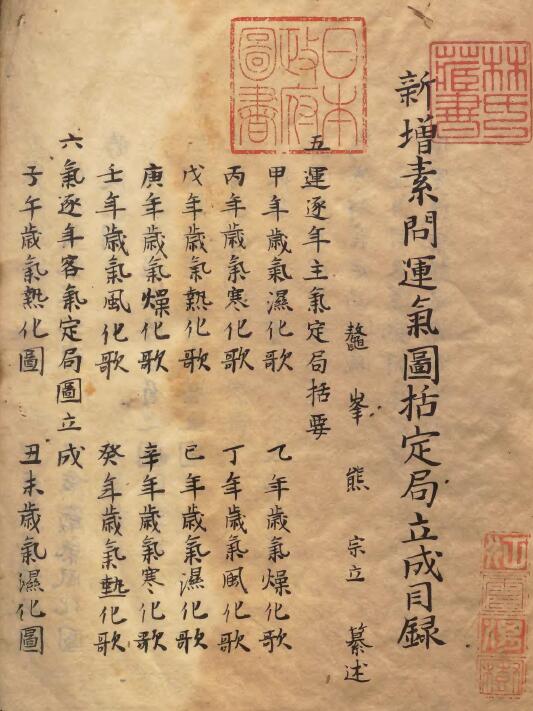 林氏藏書
新增素問運氣圖括定局立成目録
江雲渭樹
鼇峯熊宗立纂述
日本政府圖書
五運逐年主氣定局括要
甲年歲氣濕化歌 乙年歲氣燥化歌
丙年歲氣寒化歌 丁年歲氣風化歌
戊年歲氣熱化歌 己年歲氣濕化歌
庚年歲氣燥化歌 辛年歲氣寒化歌
壬年歲氣風化歌 癸年歲氣熱化歌
六氣逐年客氣定局圖立成
子午歲氣熱化圖 丑未歲氣濕化圖